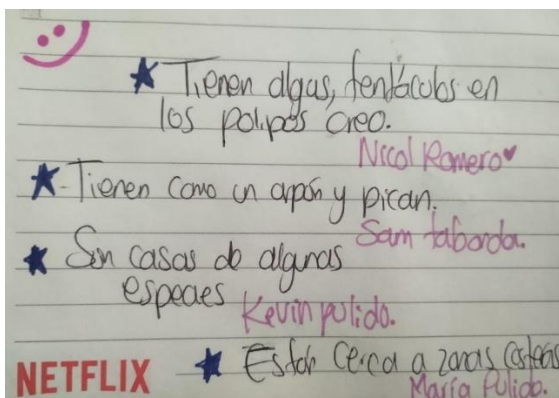 Tienen algas, tentáculos en
los polipos creo.
Nicol Romero
Tienen como un arpón y pican.
Sam taborda.
Son casas de algunas
especies
Kevin pulido.
NETFLIX
Están cerca a zonas costeras
María Pulido.